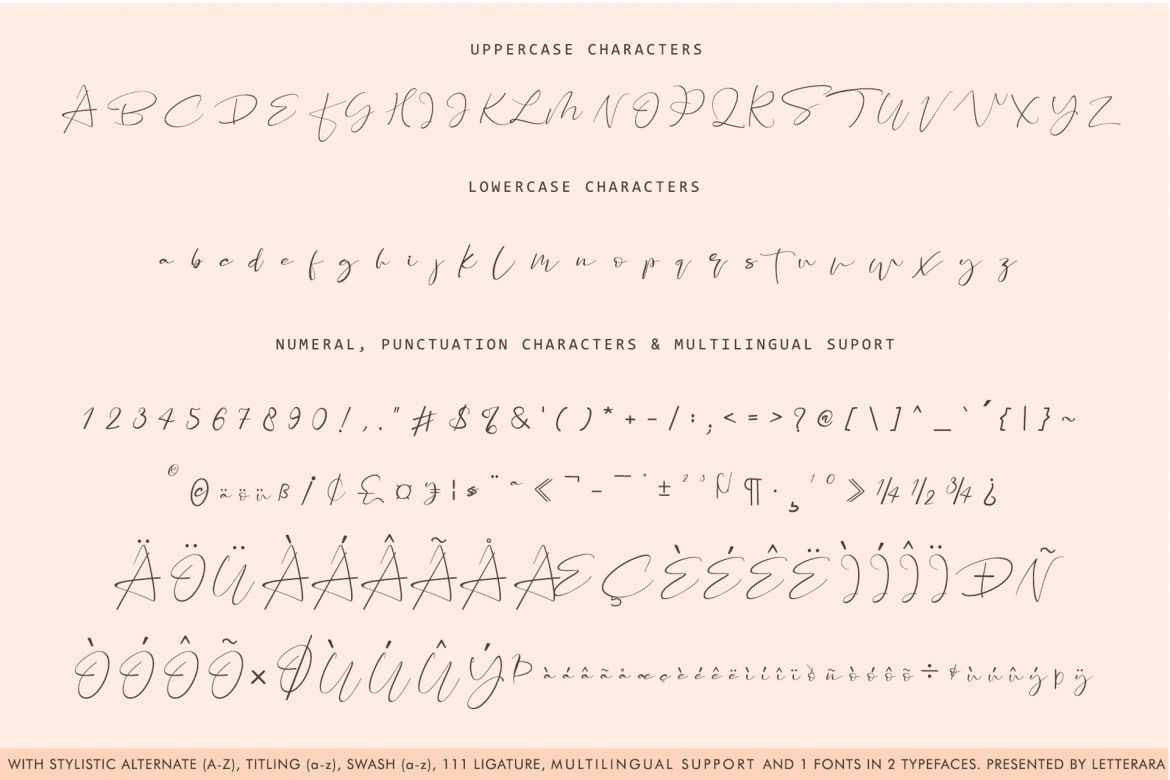 UPPERCASE CHARACTERS
A B C D E F G H I J K L M N O P Q R S T U V W X Y Z
LOWERCASE CHARACTERS
a b c d e f g h i j k l m n o p q r s t u v w x y z
NUMERAL, PUNCTUATION CHARACTERS & MULTILINGUAL SUPORT
1 2 3 4 5 6 7 8 9 0 ! , . " # $ % & ' ( ) * + - / : ; < = > ? @ [ \ ] ^ _ ` ´ { | } ~
© © ä ö ü ß ¡ ¢ £ ¤ ¥ ¦ § ¨ ª « ¬ - ¯ ° ± ² ³ µ ¶ · ¸ ¹ º » ¼ ½ ¾ ¿
Ä Ö Ü À Á Â Ã Å Æ Ç È É Ê Ë Ì Í Î Ï Ð Ñ
Ò Ó Ô Õ × Ø Ù Ú Û Ý Þ à á â ã å æ ç è é ê ë ì í î ï ð ñ ò ó ô õ ÷ ø ù ú û ý þ ÿ
WITH STYLISTIC ALTERNATE (A-Z), TITLING (a-z), SWASH (a-z), 111 LIGATURE, MULTILINGUAL SUPPORT AND 1 FONTS IN 2 TYPEFACES. PRESENTED BY LETTERARA